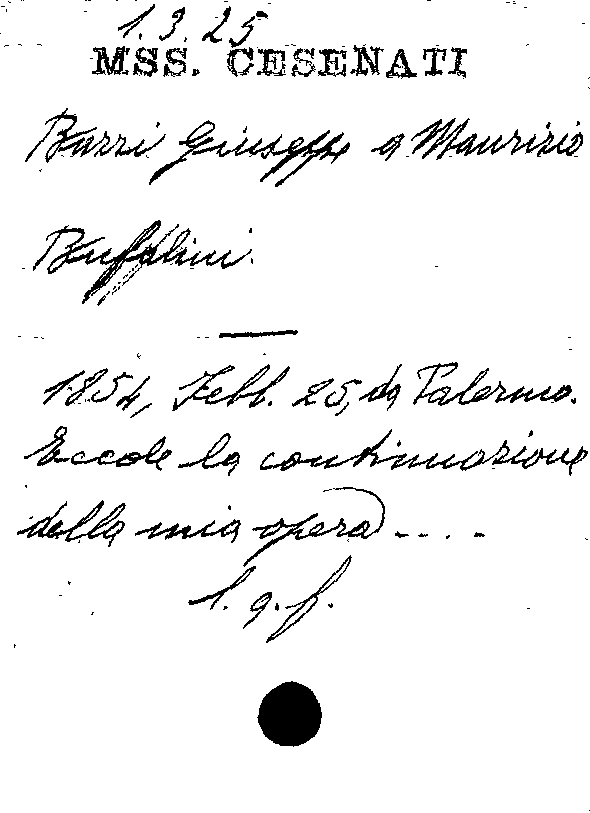 1.3.25
MSS. CESENATI
Barri Giuseppe a Maurizio
Bufalini.
1854, Febb. 25, da Palermo.
Eccole la continuazione
della mia opera ....
l. a. f.